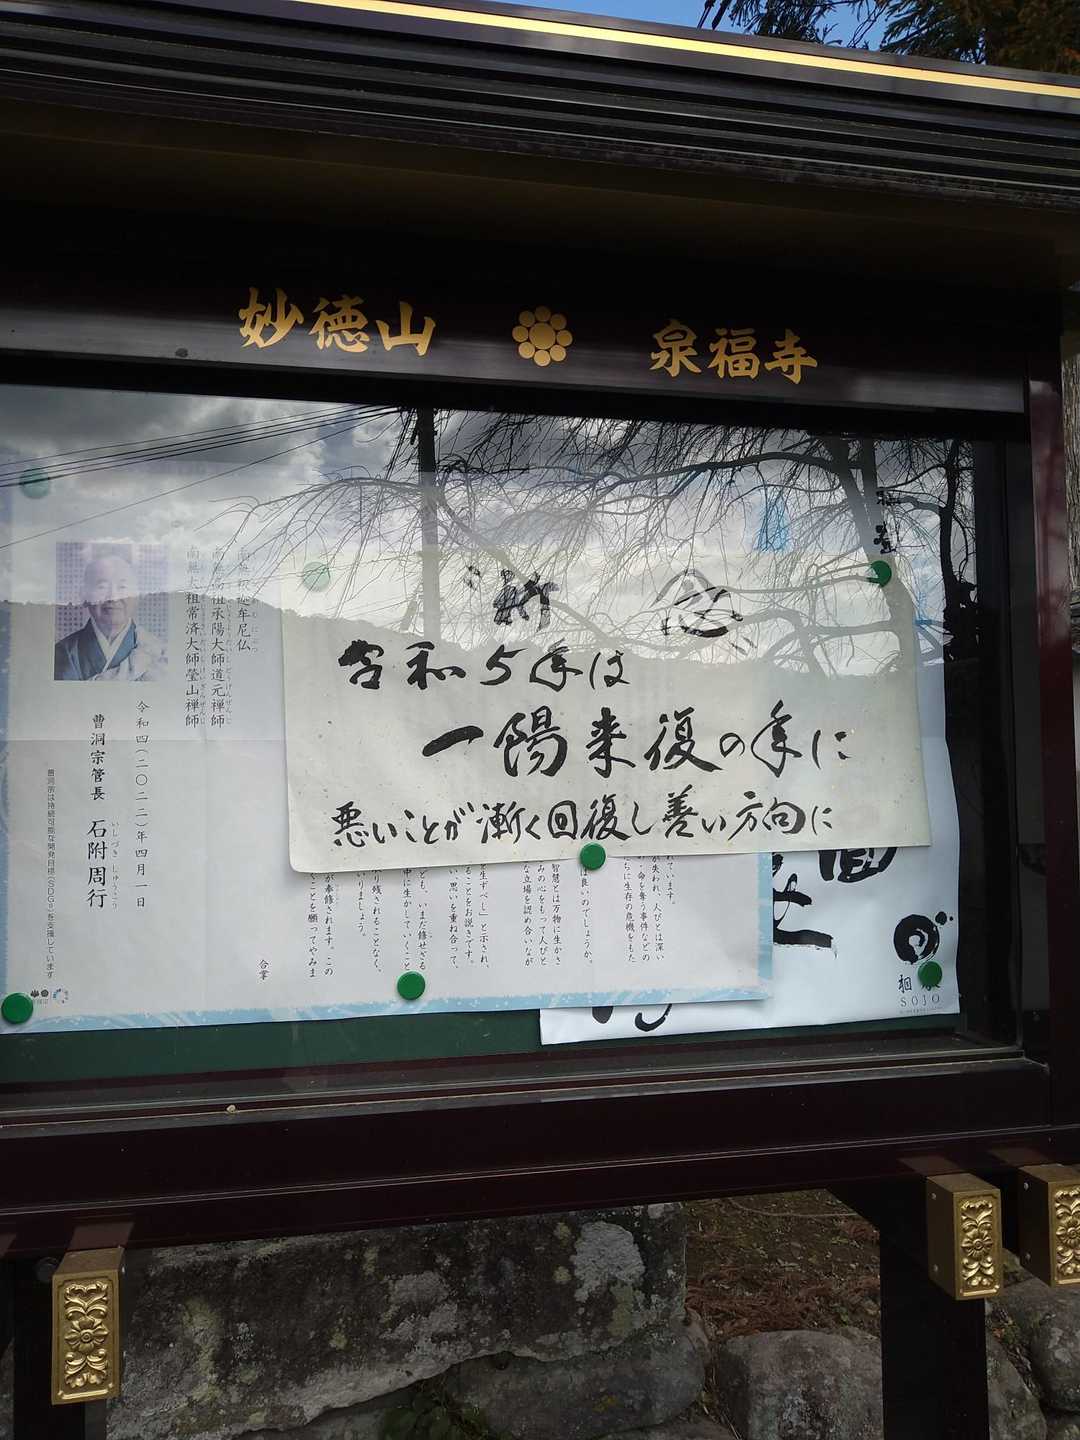 妙徳山 泉福寺
祈念
令和5年は
一陽来復の年に
悪いことが漸く回復し善い方向に
南無釈迦牟尼仏
南無高祖承陽大師道元禅師
南無太祖常済大師瑩山禅師
令和四(二〇二二)年四月一日
曹洞宗管長 石附周行
いしづき しゅうこう
曹洞宗は持続可能な開発目標(SDGs)を支援しています
れています。
が失われ、人びとは深い
・命を奪う事件などの
ちに生存の危機をもた
は良いのでしょうか。
智慧とは万物に生かさ
みの心をもって人びと
な立場を認め合いなが
を生ずべし」と示され、
ることをお説きです。
い、思いを重ね合って、
ども、いまだ修せざる
中に生かしていくこと
り残されることなく、
いりましょう。
が奉修されます。この
くことを願ってやみま
合掌
SOJO